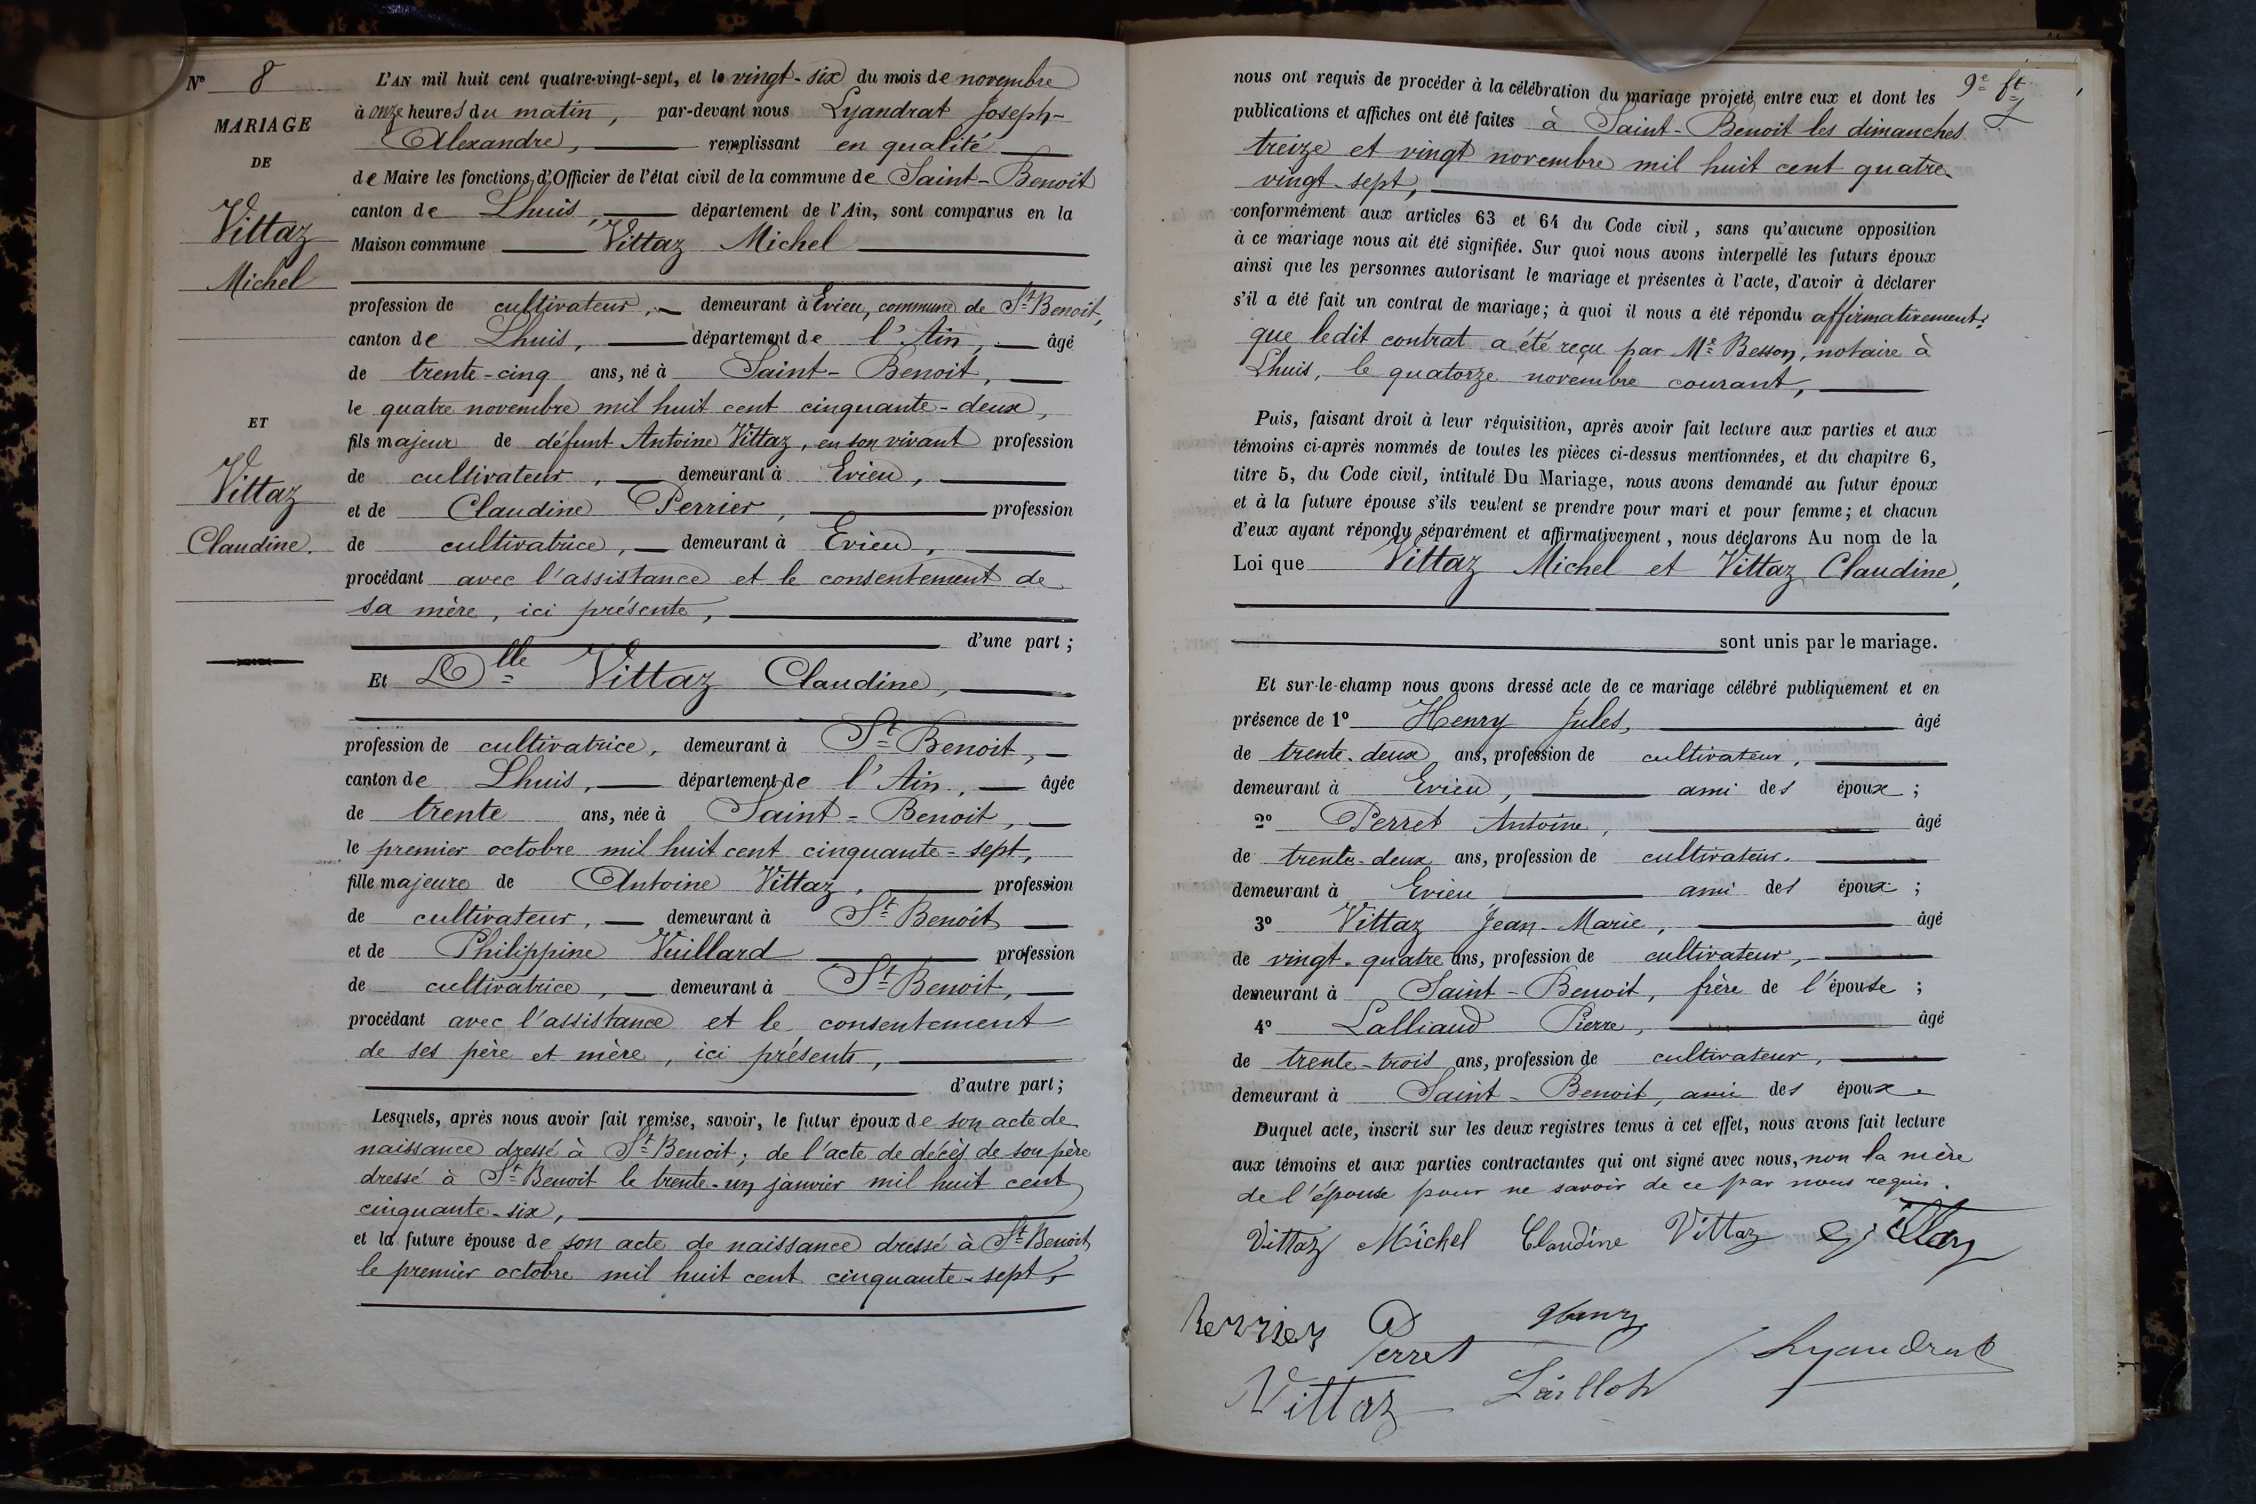 N° 8
MARIAGE
DE
Vittaz
Michel
ET
Vittaz
Claudine.
L'AN mil huit cent quatre-vingt-sept, et le vingt-six du mois de novembre
à onze heures du matin, par-devant nous Lyandrat Joseph-
Alexandre, remplissant en qualité
de Maire les fonctions d'Officier de l'état civil de la commune de Saint-Benoit
canton de Lhuis, département de l'Ain, sont comparus en la
Maison commune Vittaz Michel
profession de cultivateur, demeurant à Evieu, commune de St Benoit,
canton de Lhuis, département de l'Ain, âgé
de trente-cinq ans, né à Saint-Benoit,
le quatre novembre mil huit cent cinquante-deux,
fils majeur de défunt Antoine Vittaz, en son vivant profession
de cultivateur, demeurant à Evieu,
et de Claudine Perrier, profession
de cultivatrice, demeurant à Evieu,
procédant avec l'assistance et le consentement de
sa mère, ici présente,
d'une part;
Et Dlle Vittaz Claudine,
profession de cultivatrice, demeurant à St Benoit,
canton de Lhuis, département de l'Ain, âgée
de trente ans, née à Saint-Benoit,
le premier octobre mil huit cent cinquante-sept,
fille majeure de Antoine Vittaz, profession
de cultivateur, demeurant à St Benoit
et de Philippine Vuillard profession
de cultivatrice, demeurant à St Benoit,
procédant avec l'assistance et le consentement
de ses père et mère, ici présents,
d'autre part;
Lesquels, après nous avoir fait remise, savoir, le futur époux de son acte de
naissance dressé à St Benoit; de l'acte de décès de son père
dressé à St Benoit le trente-un janvier mil huit cent
cinquante-six,
et la future épouse de son acte de naissance dressé à St Benoit
le premier octobre mil huit cent cinquante-sept,
9e ft
nous ont requis de procéder à la célébration du mariage projeté entre eux et dont les
publications et affiches ont été faites à Saint-Benoit les dimanches
treize et vingt novembre mil huit cent quatre-
vingt-sept,
conformément aux articles 63 et 64 du Code civil, sans qu'aucune opposition
à ce mariage nous ait été signifiée. Sur quoi nous avons interpellé les futurs époux
ainsi que les personnes autorisant le mariage et présentes à l'acte, d'avoir à déclarer
s'il a été fait un contrat de mariage; à quoi il nous a été répondu affirmativement:
que ledit contrat a été reçu par Me Besson, notaire à
Lhuis, le quatorze novembre courant,
Puis, faisant droit à leur réquisition, après avoir fait lecture aux parties et aux
témoins ci-après nommés de toutes les pièces ci-dessus mentionnées, et du chapitre 6,
titre 5, du Code civil, intitulé Du Mariage, nous avons demandé au futur époux
et à la future épouse s'ils veulent se prendre pour mari et pour femme; et chacun
d'eux ayant répondu séparément et affirmativement, nous déclarons Au nom de la
Loi que Vittaz Michel et Vittaz Claudine,
sont unis par le mariage.
Et sur-le-champ nous avons dressé acte de ce mariage célébré publiquement et en
présence de 1° Henry Jules, âgé
de trente-deux ans, profession de cultivateur,
demeurant à Evieu, ami des époux;
2° Perret Antoine, âgé
de trente-deux ans, profession de cultivateur.
demeurant à Evieu ami des époux;
3° Vittaz Jean-Marie, âgé
de vingt-quatre ans, profession de cultivateur,
demeurant à Saint-Benoit, frère de l'épouse;
4° Lalliaud Pierre, âgé
de trente-trois ans, profession de cultivateur,
demeurant à Saint-Benoit, ami des époux.
Duquel acte, inscrit sur les deux registres tenus à cet effet, nous avons fait lecture
aux témoins et aux parties contractantes qui ont signé avec nous, non la mère
de l'épouse pour ne savoir de ce par nous requis.
Vittaz Michel Claudine Vittaz
Perrier Perret Henry Lyandrat
Vittaz